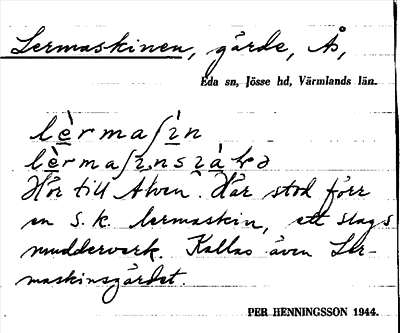 Lermaskinen, gärde, Ås,
Eda sn, Jösse hd, Värmlands län.
Hör till Älven. Här stod förr
en s.k. lermaskin, ett slags
mudderverk. Kallas även Ler-
maskinsgärdet.
PER HENNINGSSON 1944.